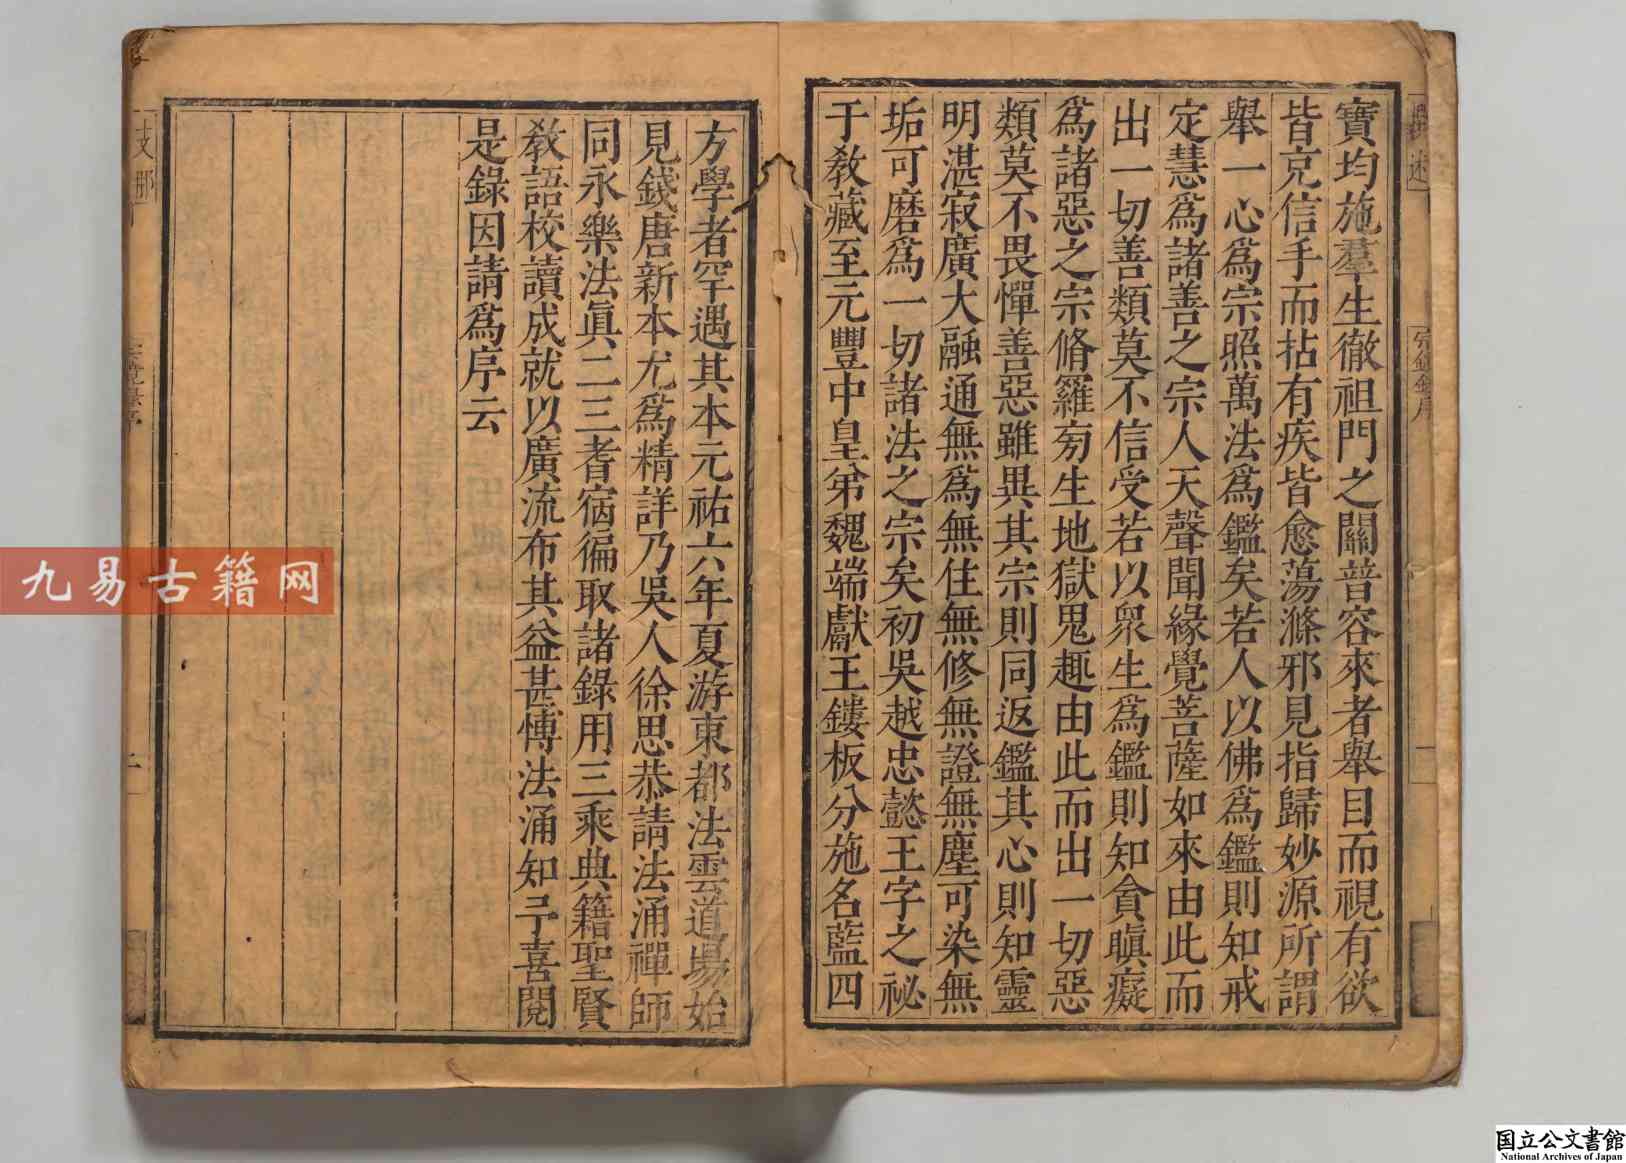 寶均施羣生徹祖門之關普容來者舉目而視有欲
皆克信手而拈有疾皆愈蕩滌邪見指歸妙源所謂
舉一心爲宗照萬法爲鑑矣若人以佛爲鑑則知戒
定慧爲諸善之宗人天聲聞緣覺菩薩如來由此而
出一切善類莫不信受若以衆生爲鑑則知貪瞋癡
爲諸惡之宗脩羅旁生地獄鬼趣由此而出一切惡
類莫不畏憚善惡雖異其宗則同返鑑其心則知靈
明湛寂廣大融通無爲無住無修無證無塵可染無
垢可磨爲一切諸法之宗矣初吳越忠懿王字之祕
于教藏至元豐中皇弟魏端獻王鏤板分施名藍四
方學者罕遇其本元祐六年夏游東都法雲道場始
見錢唐新本尤爲精詳乃吳人徐思恭請法涌禪師
同永樂法眞二三耆宿徧取諸錄用三乘典籍聖賢
敎語校讀成就以廣流布其益甚愽法涌知予喜閱
是錄因請爲序云
支那
九易古籍网
国立公文書館
National Archives of Japan